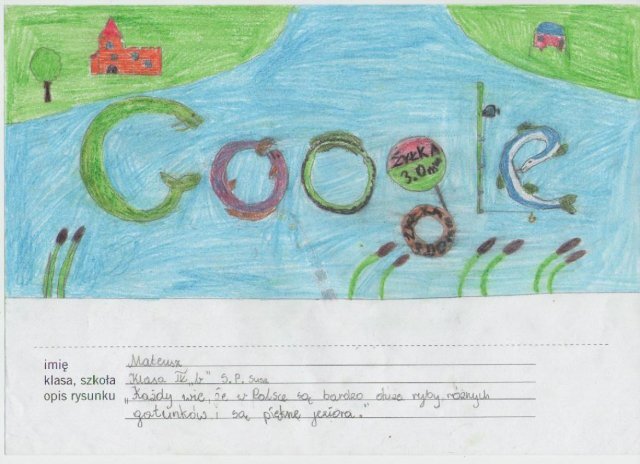 Google
ŻYŁKA
3.0m
imię Mateusz
klasa, szkoła Klasa IV „b" S.P. Susz
opis rysunku „Każdy wie, że w Polsce są bardzo duże ryby różnych
gatunków i są piękne jeziora."